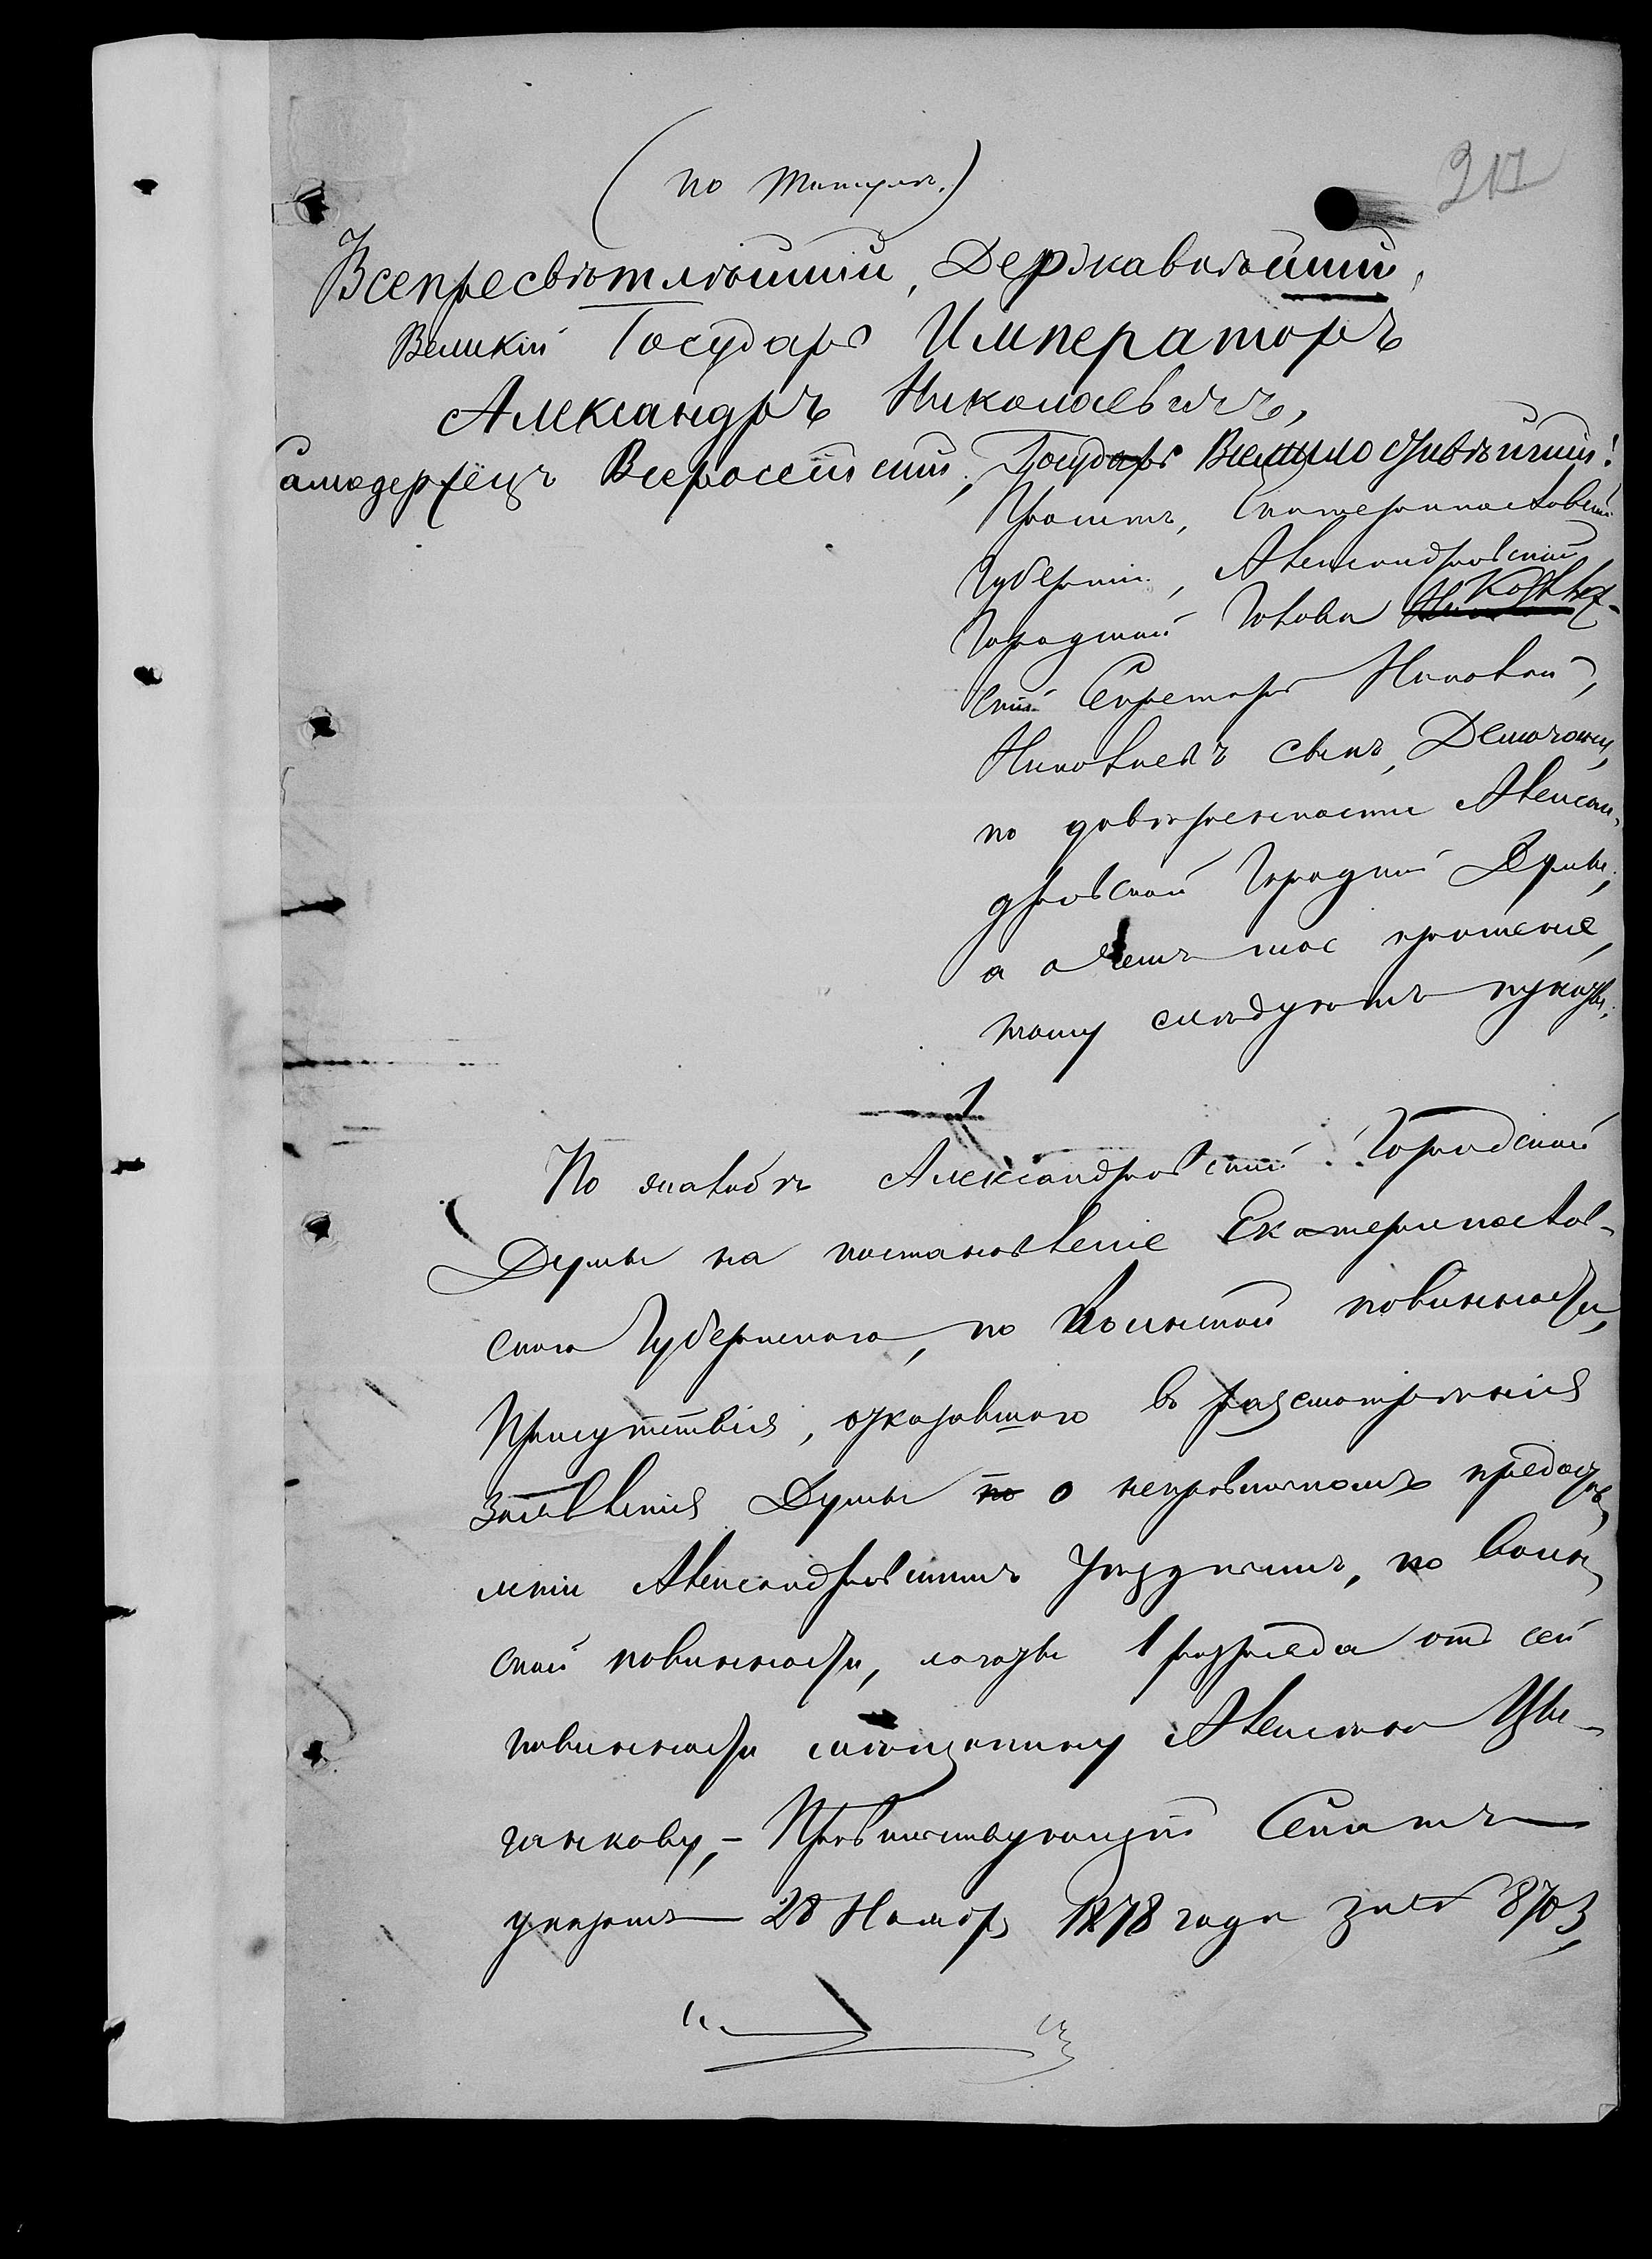 217
(по титулѣ.)
Всепресвѣтлѣйшій, Державнѣйшій,
Великій Государь Императоръ
Александръ Николаевичъ,
Самодержецъ Всероссійскій, Государь Всемилостивѣйшій!
Проситъ, Екатеринославской
Губерніи, Александровскій
Городской Голова Коллеж-
скій Секретарь Николай,
Николаевъ сынъ,
по довѣренности Алексан-
дровской Городской Думы,
а о чемъ мое прошеніе,
тому слѣдуютъ пункты:
1
По жалобѣ Александровской Городской
Думы на постановленіе Екатеринослав-
скаго Губернскаго, по воинской повинности,
Присутствія, отказавшаго въ разсмотрѣнія
заявленія Думы о неправильномъ предостав-
леніи Александровскимъ Уѣзднымъ, по воин-
ской повинности, льготы 1 разряда отъ сей
повинности мѣщанину Алексѣю Цы-
ганкову, – Правительствующій Сенатъ
указомъ 28 Ноября 1878 года за № 8703,